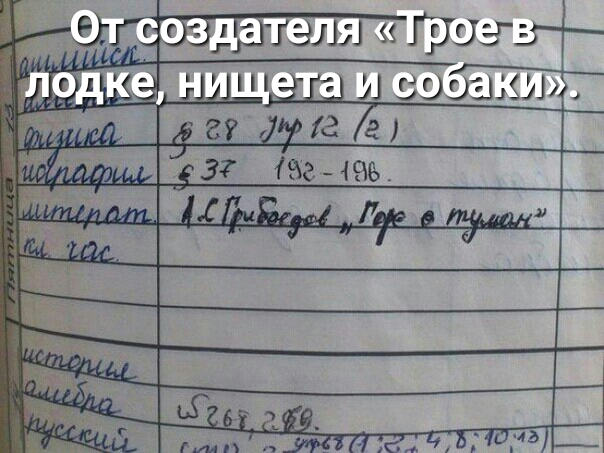 От создателя «Трое в
лодке, нищета и собаки».
английск.
алгебра
физика § 28 упр 12 (2)
география § 37 192-196.
литерат. А.С Грибоедов „Горе о туман"
кл. час.
Пятница
история
алгебра № 268, 269.
русский упр 68 (1; 2; 4, 8; 10, 13)